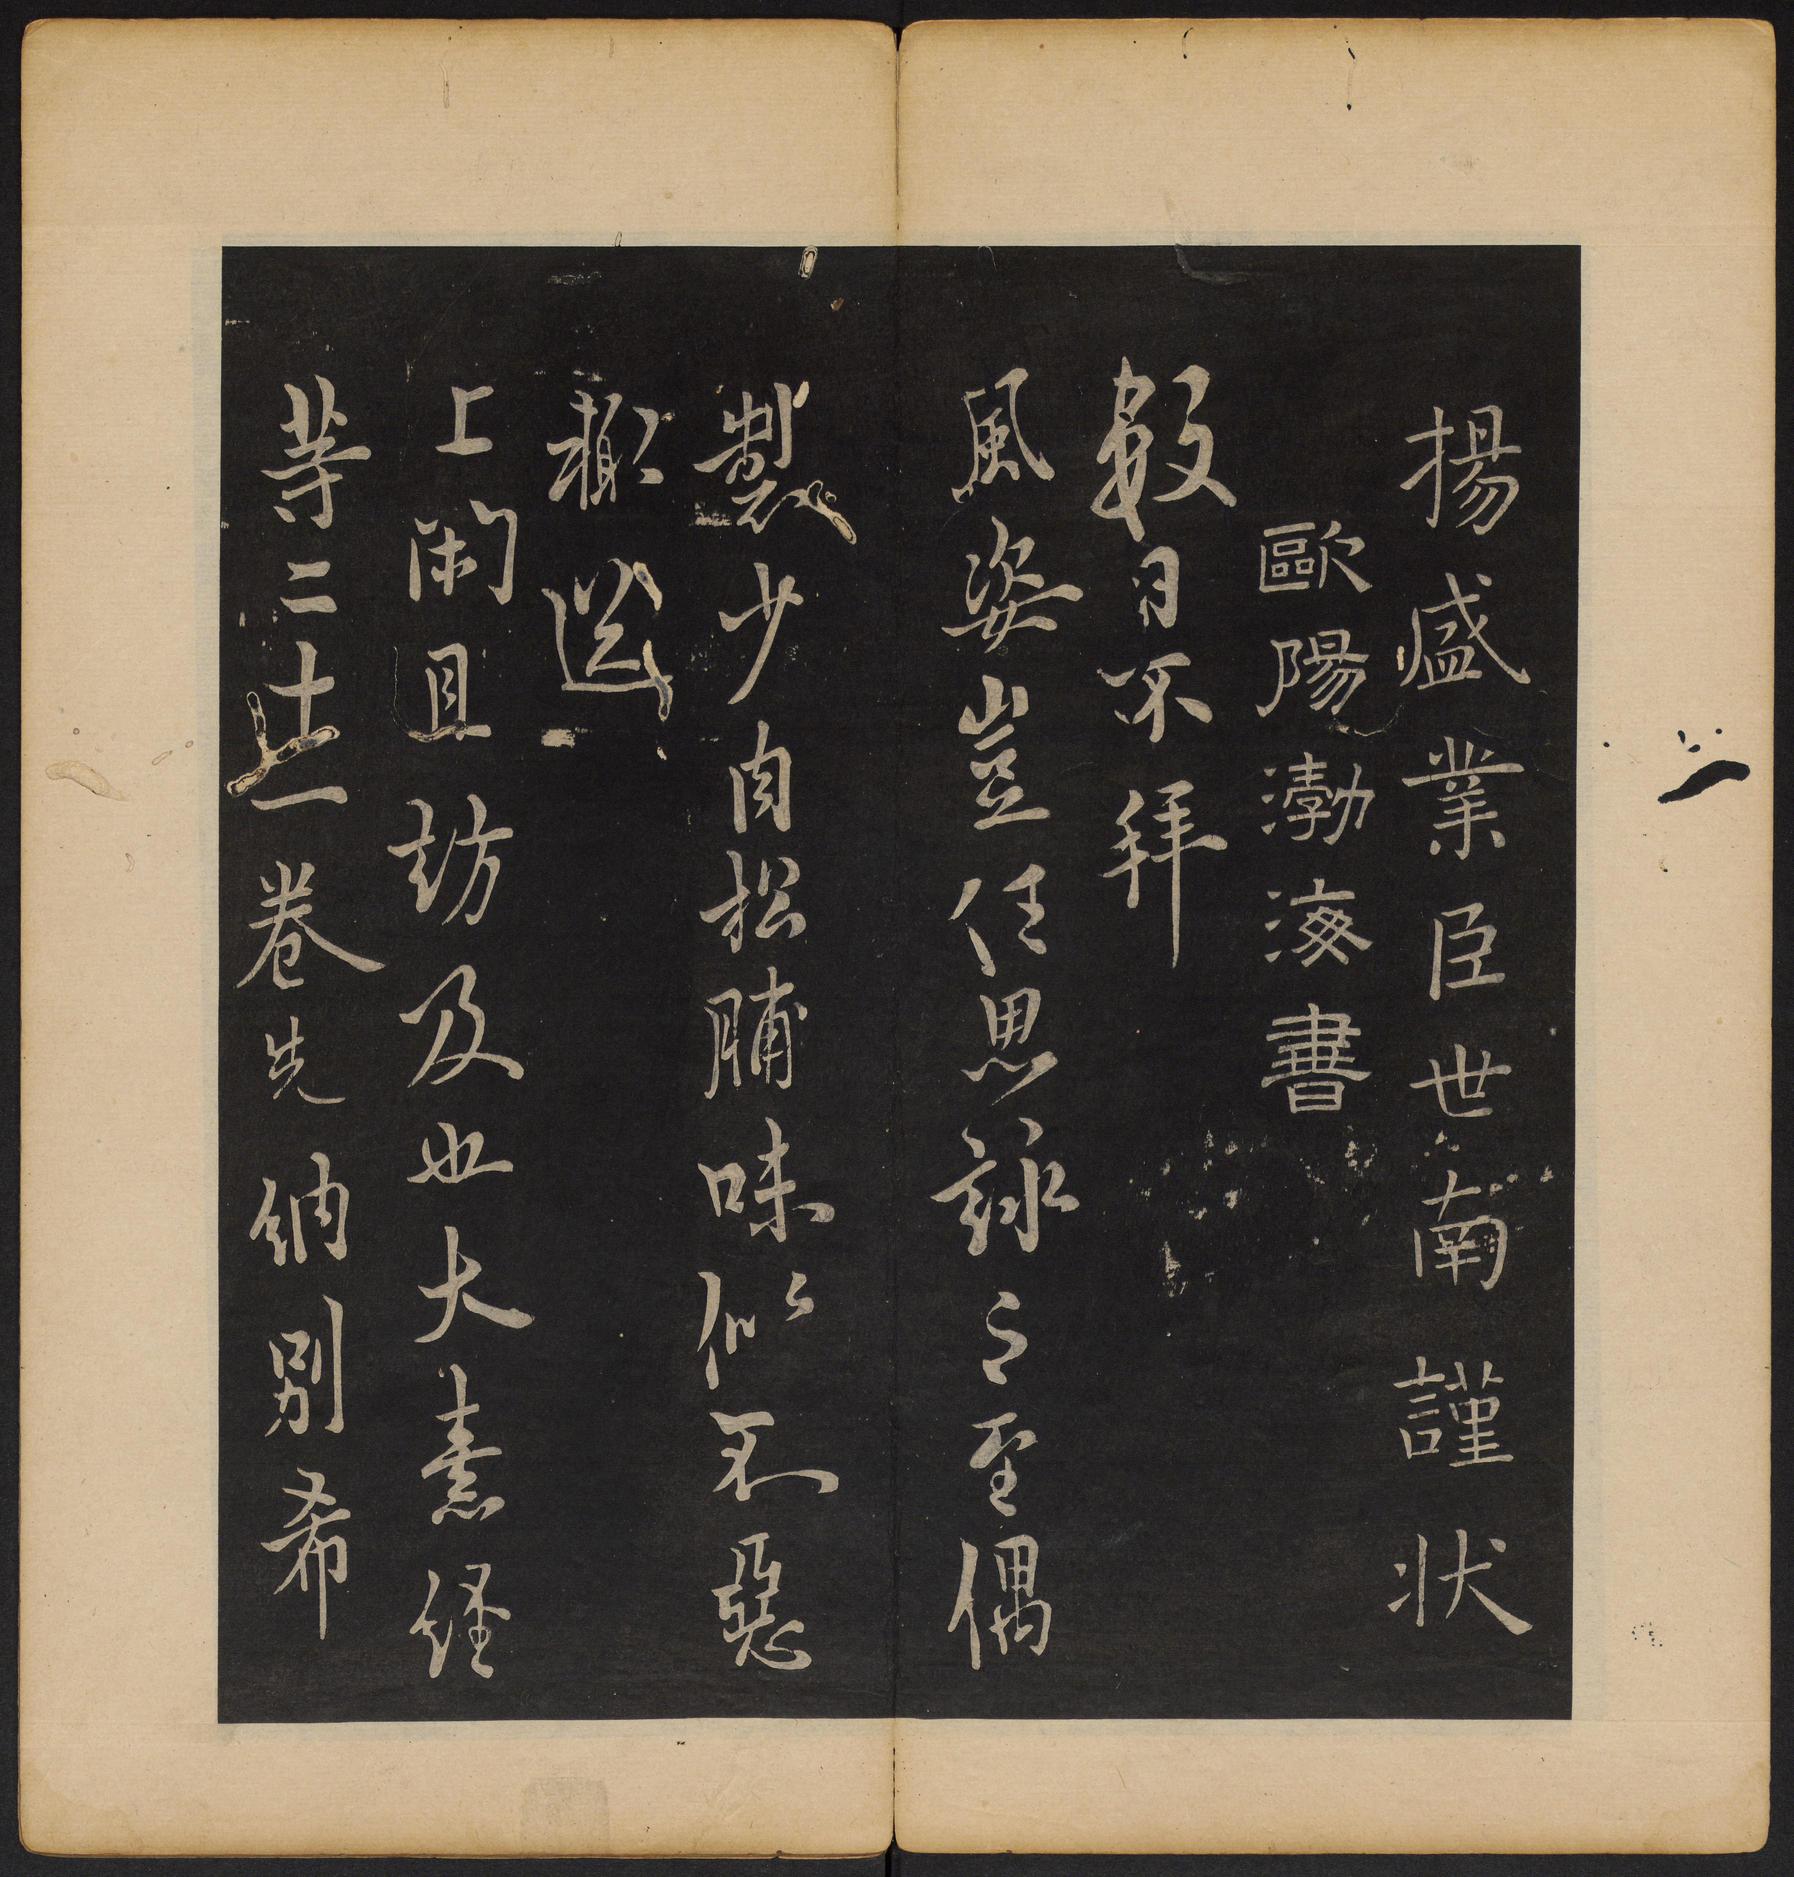 揚盛業臣世南謹狀
歐陽渤海書
數日不拜
風姿豈任思詠之至偶
製少肉松脯味似不惡
輒送
上閑且訪及也大素經
等二十一卷先納別希